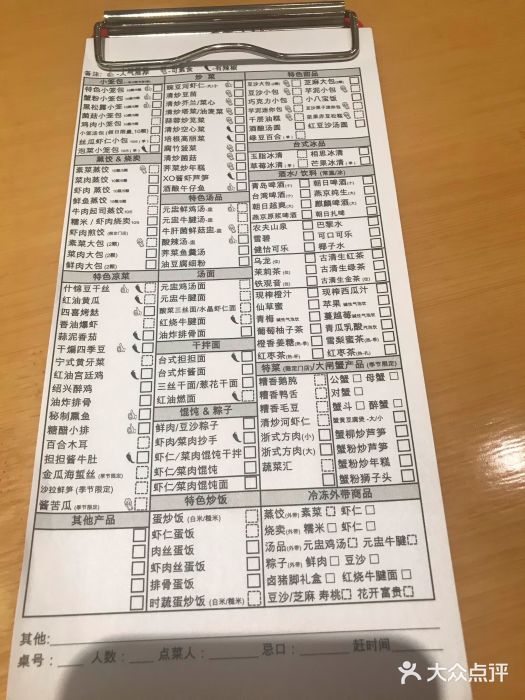 备注: -人气推荐 -可素食 -有辣椒
小笼包
特色小笼包
蟹粉小笼包
黑松露小笼
菌菇小笼包
鸡肉小笼包
小笼汤包 (假日限量,10颗)
丝瓜虾仁小包
泡菜小笼包
蒸饺 & 烧卖
素菜蒸饺
菜肉蒸饺
虾肉蒸饺
鲜鱼蒸饺
牛肉起司蒸饺
糯米 / 虾肉烧卖
虾肉煎饺
素菜大包 (2颗)
菜肉大包 (2颗)
鲜肉大包 (2颗)
特色凉菜
什锦豆干丝
红油黄瓜
四喜烤麸
香油爆虾
蒜泥香茄
干煸四季豆
宁式黄牙菜
红油宫廷鸡
绍兴醉鸡
油炸排骨
秘制熏鱼
糖醋小排
百合木耳
担担酱牛肚
金瓜海蜇丝 (季节限定)
沙拉鲜笋 (季节限定)
酱苦瓜 (季节限定)
其他产品
炒菜
豌豆河虾仁
清炒豆苗
清炒芥兰/菜心
清炒塔菜/油麦菜
蒜蓉炒苋菜
清炒空心菜
培根高丽菜
腐竹菠菜
清炒菌菇
荠菜炒年糕
XO酱虾芦笋
酒酿牛仔鱼
特色汤品
元盅鲜鸡汤
元盅牛腱汤
牛肝菌鲜菇盅
酸辣汤
荠菜鱼羹汤
油豆腐细粉
汤面
元盅鸡汤面
元盅牛腱面
酸菜三丝面/水晶虾仁面
红烧牛腱面
油炸排骨面
干拌面
台式担担面
台式炸酱面
三丝干面/葱花干面
红油燃面
馄饨 & 粽子
鲜肉/豆沙粽子
虾肉/菜肉抄手
虾仁/菜肉馄饨干拌
虾仁/菜肉馄饨
虾仁/菜肉馄饨面
特色炒饭
蛋炒饭 (白米/糙米)
虾仁蛋饭
肉丝蛋饭
虾肉丝蛋饭
排骨蛋饭
时蔬蛋炒饭 (白米/糙米)
特色甜品
豆沙大包 芝麻大包
豆沙小包 芋泥小包
巧克力小包 小八宝饭
芋泥迷你包
千层油糕
酒酿汤圆 红豆沙汤圆
绿豆百合
台式冰品
玉脂冰清 相思冰清
草莓冰清 芒果冰清
酒水/饮料 (常温/冰)
青岛啤酒 朝日啤酒
台湾啤酒 燕京纯生
朝日超爽 麒麟啤酒
燕京原浆啤酒 朝日扎啤
农夫山泉 巴黎水
雪碧 可口可乐
健怡可乐 椰子水
乌龙 古清生红茶
茉莉茶 古清生绿茶
铁观音 古清生金茶
现榨橙汁 现榨西瓜汁
仙草蜜 苹果
青梅 蔓越莓
葡萄柚子茶 青瓜乳酸
橙香姜糖 雪梨蜜茶
红枣茶 红枣茶
特菜 (限定门店)/大闸蟹产品 (季节限定)
糟香鹅肫 公蟹 母蟹
糟香鸭舌 对蟹
糟香毛豆 蟹斗 醉蟹
清炒河虾仁 蟹黄豆腐煲-大/小
浙式方肉 (小) 蟹柳炒芦笋
浙式方肉 (大) 蟹粉炒芦笋
蔬菜汇 蟹粉炒年糕
蟹粉狮子头
冷冻外带商品
蒸饺 (外带) 素菜 虾仁
烧卖 (外带) 糯米 虾仁
汤品 (外带) 元盅鸡汤 元盅牛腱
粽子 (外带) 鲜肉 豆沙
卤猪脚礼盒 红烧牛腱面
豆沙/芝麻 寿桃 花开富贵
其他:
桌号: 人数: 点菜人: 忌口: 赶时间
大众点评